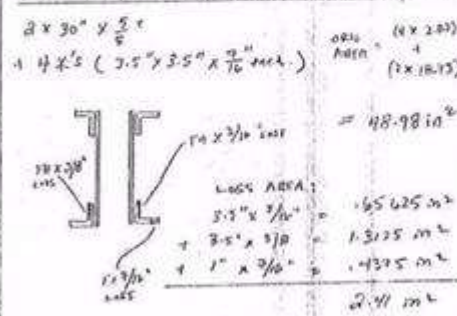 2 x 30" x 5/8"
+ 4 L's ( 3.5" x 3.5" x 7/16" thick )
ORIG AREA = (4 x 2.87) + (2 x 18.75)
= 48.98 in²
FH x 3/16" LOSS
3/8" LOSS
LOSS AREA:
3.5" x 3/16" = .65625 in²
+ 3.5" x 3/8 = 1.3125 in²
+ 1" x 7/16" = .4375 in²
1 x 7/16" LOSS
2.41 in²